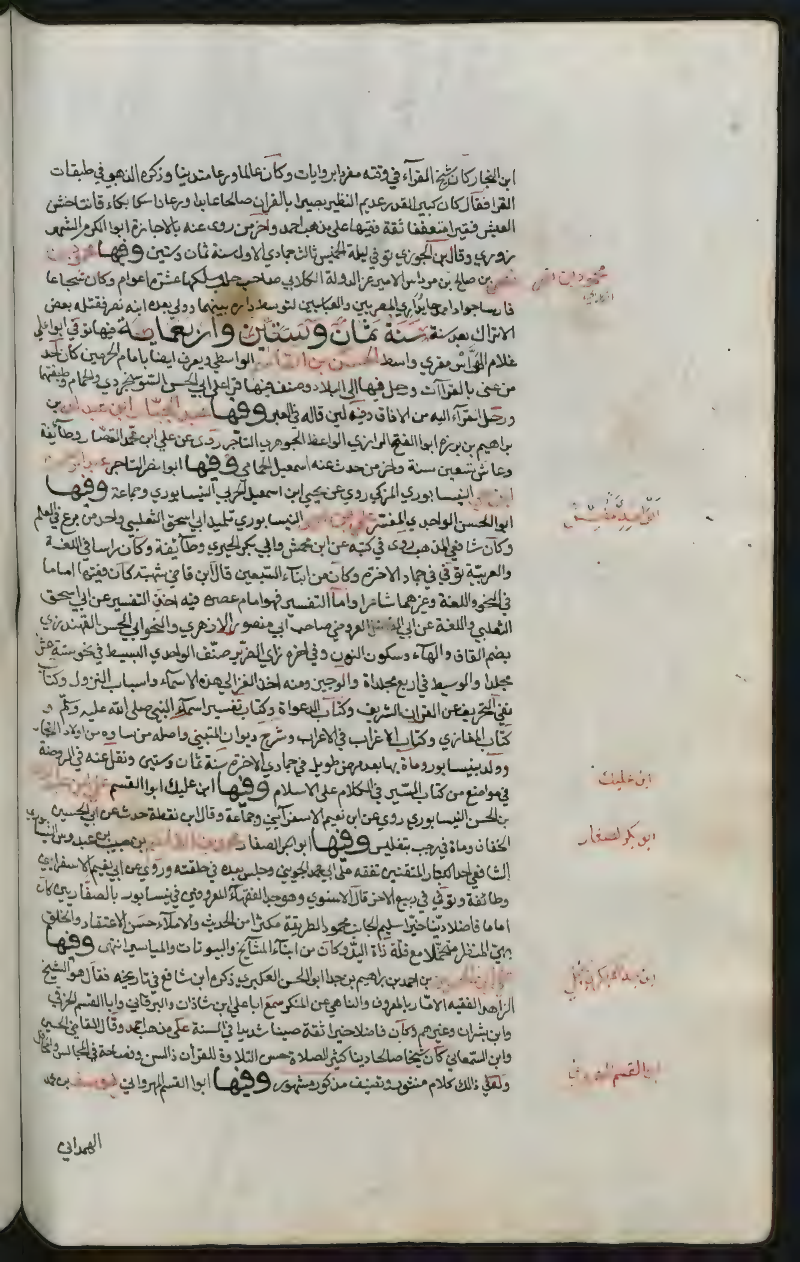 ابن النجار كان شيخ القرآء في وقته مفردا بروايات وكان عالما ورعا متدينا وذكره الذهبي في طبقات
القرا فقال كان كبير القدر عديم النظير بصيرا بالقران صالحا عابدا ورعا ناسكا بكاء قانتا خشن
العيش فقيرا متعففا ثقة فقيها على مذهب احمد واخر من روى عنه بالاجازة ابوا الكرم الشهر
زوري وقال بن الجوزي توفي ليلة الخميس ثالث جمادي الاولى سنة ثمان وستين وفيها
بن صالح بن مرداس الامير عز الدولة الكلابي صاحب حلب ملكها عشرة اعوام وكان شجاعا
فارسا جوادا يداري المصريين والعباسيين لتوسط داره بينهما وولي بعده ابنه نصر فقتله بعض
الاتراك بعد سنة سنة ثمان وستين واربعماية فيها توفي ابوا علي
غلام الهراس مقري واسط الحسن بن القاسم الواسطي ويعرف ايضا بامام الحرمين كان احد
من عنى بالقراآت ورحل فيها الى البلاد وصنف فيها قرا على ابي الحسن السوسنجردي والحمامي وطبقتهما
ورحل القرآء اليه من الافاق وفيه لين قاله في العبر وفيها عبد الجبار ابن عبد الله بن
براهيم بن برزه ابوا الفتح الرازي الواعظ الجوهري التاجر روى عن علي ابن محمد القصار وطائفة
وعاش تسعين سنة واخر من حدث عنه اسمعيل الحمامي وفيها ابوا نصر التاجر
النيسابوري المزكي روي عن يحيى ابن اسمعيل الحربي النيسابوري وجماعة وفيها
ابوا الحسن الواحدي المفسر علي بن احمد النيسابوري تلميذ ابي اسحق الثعلبي واحد من برع في العلم
وكان شافعي المذهب روى في كتبه عن ابن محمش وابي بكر الحيري وطائفة وكان راسا في اللغة
والعربية توفي في جماد الاخرة وكان من ابناء السبعين قال ابن قاضي شهبة كان فقيها اماما
في النحو واللغة وغيرهما شاعرا واما التفسير فهو امام عصره فيه اخذ التفسير عن ابي اسحق
الثعلبي واللغة عن ابي الفضل العروضي صاحب ابي منصور الازهري والنحو ابي الحسن القهندزي
بضم القاف والهاء وسكون النون وفي اخره زاي الضرير صنف الواحدي البسيط في نحو ستة عشر
مجلدا والوسيط في اربع مجلداة والوجيز ومنه اخذ الغزالي هذه الاسماء واسباب النزول وكتاب
نفي التحريف عن القران الشريف وكتاب الدعواة وكتاب تفسير اسماء النبي صلى الله عليه وسلم و
كتاب المغازي وكتاب الاغراب في الاعراب وشرح ديوان المتنبي واصله من ساوه من اولاد التجار
وولد بنيسابور وماة بها بعد مرض طويل في جمادي الاخرة سنة ثمان وستين ونقل عنه في الروضة
في مواضع من كتاب السير في الكلام على الاسلام وفيها ابن عليك ابوا القسم علي بن
بن الحسن النيسابوري روي عن ابن نعيم الاسفرآيني وجماعة وقال ابن نقطة حدث عن ابي الحسين
الخفاف وماة في رجب بتفليس وفيها ابو بكر الصفار محمد بن القاسم بن حبيب بن عبدوس النيسابوري
الشافعي احد الكبار المتقنين تفقه على ابي محمد الجويني وجلس بعده في حلقته وروي عن ابي نعيم الاسفرايني
وطائفة وتوفي في ربيع الاخر قال الاسنوي وهو جد الفقهاء المعروفين في نيسابور بالصفاريين كان
اماما فاضلا دينا خيرا سليم الجانب محمود الطريقة مكثرا من الحديث والاملاء حسن الاعتقاد والخلق
بهي المنظر متجملا مع قلة ذاة اليد وكان من ابناء المشايخ والبيوتات والمياسير انتهى وفيها
بن احمد بن براهيم بن جدا ابوا الحسن العكبري ذكره ابن شافع في تاريخه فقال هو الشيخ
الزاهد الفقيه الامار بالمعروف والناهي عن المنكر سمع ابا علي ابن شاذان والبرقاني وابا القسم الخرقي
وابن بشران وغيرهم وكان فاضلا خيرا ثقة صينا شديدا في السنة على مذهب احمد وقال القاضي الحسين
وابن السمعاني كان شيخا صالحا دينا كثير الصلاة حسن التلاوة للقرأن ذا لسن وفصاحة في المجالس والمحافل
وله في ذالك كلام منثور وتصنيف مذكور مشهور وفيها ابوا القسم المهرواني يوسف بن محمد
الهمداني
محمود ابن نصر
الكلابي
الواحدي مفسر
ابن عليك
ابو بكر الصفار
ابن جدا العكبري حنبلي
ابو القسم المهرواني